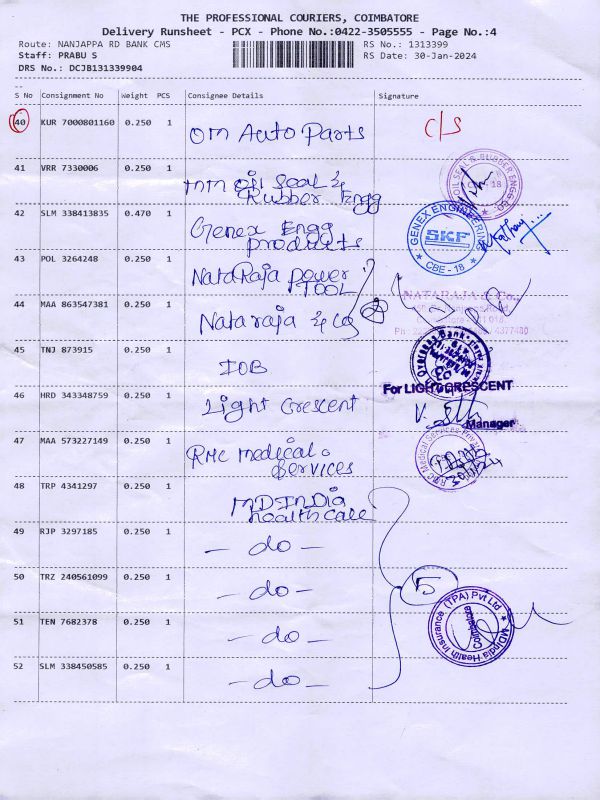 THE PROFESSIONAL COURIERS, COIMBATORE
Delivery Runsheet - PCX - Phone No.:0422-3505555 - Page No.:4
Route: NANJAPPA RD BANK CMS
RS No.: 1313399
Staff: PRABU S
RS Date: 30-Jan-2024
DRS No.: DCJB131339904
S No Consignment No Weight PCS Consignee Details Signature
40 KUR 7000801160 0.250 1 Om Auto Parts C/S
41 VRR 7330006 0.250 1 MM Oil Seal &
Rubber Engg
OIL SEAL & RUBBER ENGG
42 SLM 338413835 0.470 1 Genex Engg
products
GENEX ENGINEERING
SKF
CBE - 18
43 POL 3264248 0.250 1 Nataraja power
TOOL
44 MAA 863547381 0.250 1 Nataraja & Co
2
NATARAJA & Co.,
45 TNJ 873915 0.250 1 IOB
Overseas Bank
46 HRD 343348759 0.250 1 Light Crescent
For LIGHT CRESCENT
Manager
47 MAA 573227149 0.250 1 RMC medical
Services
RMC Medical Services
48 TRP 4341297 0.250 1 MDIndia
healthcare
49 RJP 3297185 0.250 1 - do -
50 TRZ 240561099 0.250 1 - do -
5
51 TEN 7682378 0.250 1 - do -
MDIndia Health Insurance (TPA) Pvt Ltd
Coimbatore
52 SLM 338450585 0.250 1 - do -